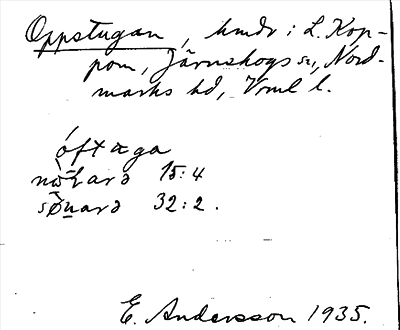 Oppstugan, hmdr i L. Kop-
pom, Järnskogs sn, Nord-
marks hd, Vrml l.
óftaga
15:4
32:2.
E. Andersson 1935.